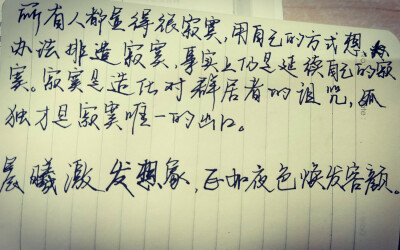 所有人都显得很寂寞,用自己的方式想尽
办法排遣寂寞,事实上仍是延续自己的寂
寞。寂寞是造化对群居者的诅咒,孤
独才是寂寞唯一的出口。
晨曦激发想象,正如夜色焕发容颜。